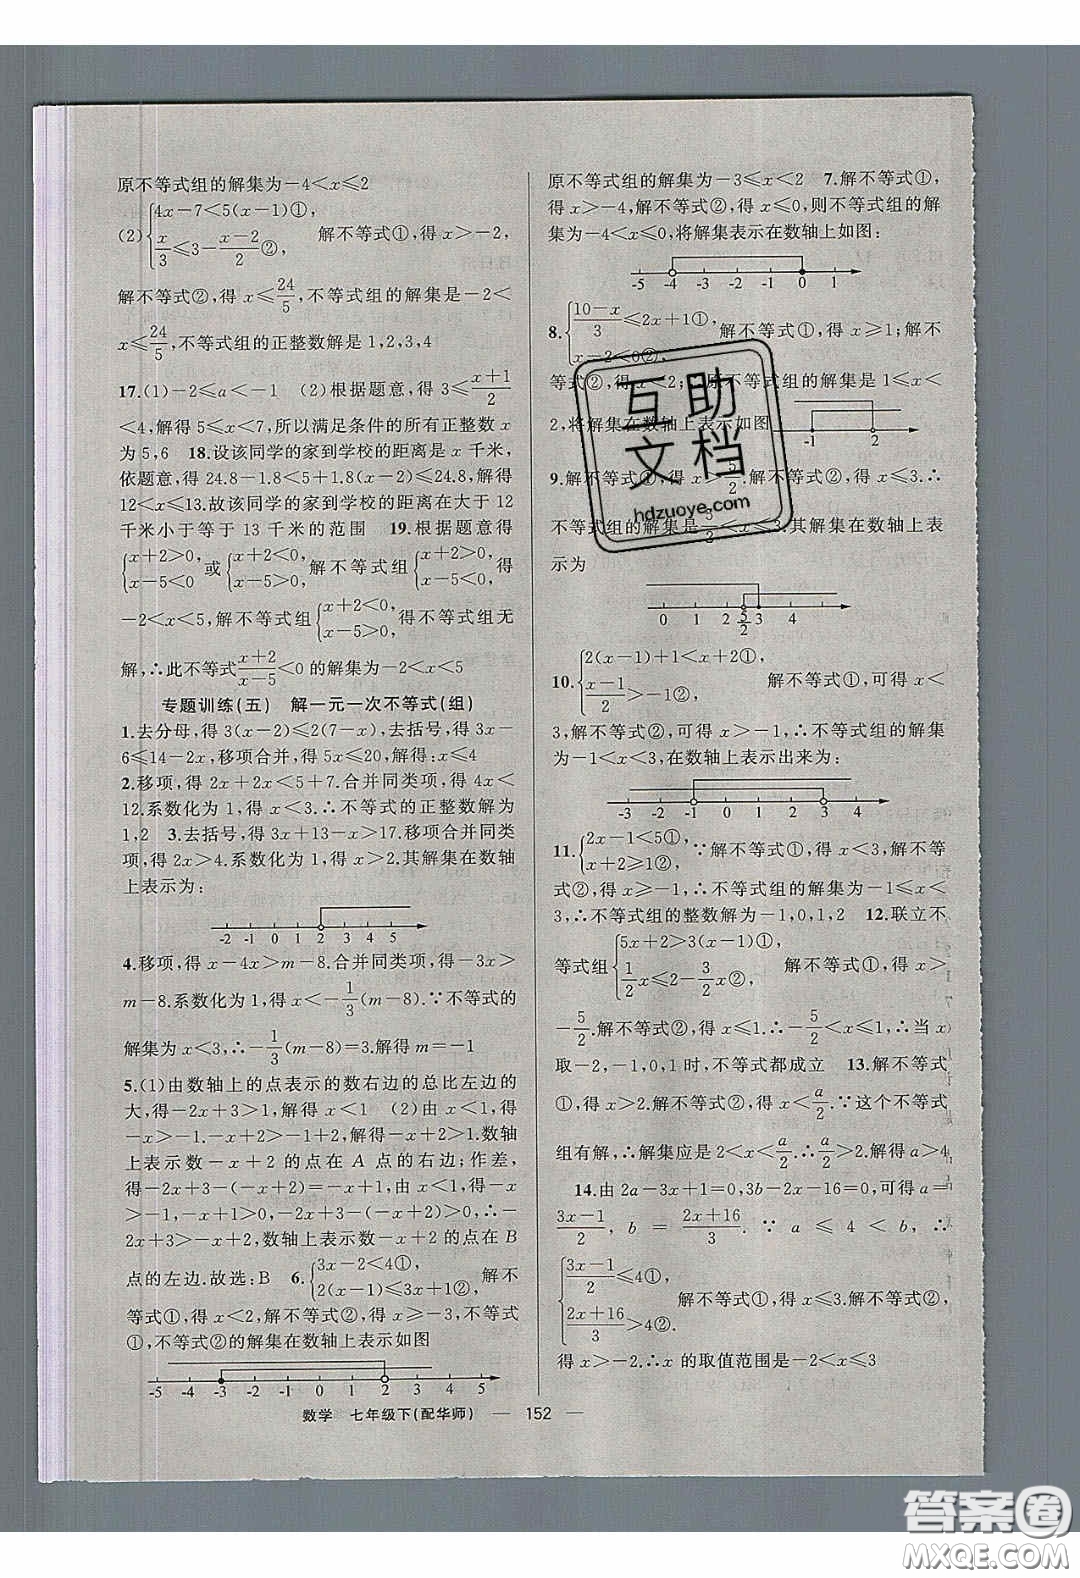 原不等式组的解集为－4＜x≤2
(2){4x－7＜5(x－1)①, x/3≤3－(x－2)/2②, 解不等式①,得 x＞－2,
解不等式②,得 x≤24/5,不等式组的解集是－2＜
x≤24/5,不等式组的正整数解是 1,2,3,4
17.(1)－2≤a＜－1 (2)根据题意,得 3≤(x＋1)/2
＜4,解得 5≤x＜7,所以满足条件的所有正整数 x
为 5,6 18.设该同学的家到学校的距离是 x 千米,
依题意,得 24.8－1.8＜5＋1.8(x－2)≤24.8,解得
12＜x≤13.故该同学的家到学校的距离在大于 12
千米小于等于 13 千米的范围 19.根据题意得
{x＋2＞0, x－5＜0 或{x＋2＜0, x－5＞0, 解不等式组{x＋2＞0, x－5＜0 得
－2＜x＜5,解不等式组{x＋2＜0, x－5＞0, 得不等式组无
解,∴此不等式(x＋2)/(x－5)＜0 的解集为－2＜x＜5
专题训练(五) 解一元一次不等式(组)
1.去分母,得 3(x－2)≤2(7－x),去括号,得 3x－
6≤14－2x,移项合并,得 5x≤20,解得:x≤4
2.移项,得 2x＋2x＜5＋7.合并同类项,得 4x＜
12.系数化为 1,得 x＜3.∴不等式的正整数解为
1,2 3.去括号,得 3x＋13－x＞17.移项合并同类
项,得 2x＞4.系数化为 1,得 x＞2.其解集在数轴
上表示为:
-2 -1 0 1 2 3 4 5
4.移项,得 x－4x＞m－8.合并同类项,得－3x＞
m－8.系数化为 1,得 x＜－1/3(m－8).∵不等式的
解集为 x＜3,∴－1/3(m－8)＝3.解得 m＝－1
5.(1)由数轴上的点表示的数右边的总比左边的
大,得－2x＋3＞1,解得 x＜1 (2)由 x＜1,得
－x＞－1.－x＋2＞－1＋2,解得－x＋2＞1.数轴
上表示数－x＋2 的点在 A 点的右边;作差,
得－2x＋3－(－x＋2)＝－x＋1,由 x＜1,得－x＞
－1,－x＋1＞0,－2x＋3－(－x＋2)＞0,∴－2x＋
3＞－x＋2,数轴上表示数－x＋2 的点在 B
点的左边.故选:B 6.{3x－2＜4①, 2(x－1)≤3x＋1②, 解不
等式①,得 x＜2,解不等式②,得 x≥－3,不等式
①,不等式②的解集在数轴上表示如图
-5 -4 -3 -2 -1 0 1 2 3 4 5
原不等式组的解集为－3≤x＜2 7.解不等式①,
得 x＞－4,解不等式②,得 x≤0,则不等式组的解
集为－4＜x≤0,将解集表示在数轴上如图:
-5 -4 -3 -2 -1 0 1
8.{(10－x)/3≤2x＋1①, x－2＜0②, 解不等式①,得 x≥1;解不
等式②,得 x＜2; 原不等式组的解集是 1≤x＜
2,将解集在数轴上表示如图
-1 2
9.解不等式①,得 x 5/2.解不等式②,得 x≤3.∴
不等式组的解集是 ＜x≤3.其解集在数轴上表
示为
0 1 2 5/2 3 4
10.{2(x－1)＋1＜x＋2①, (x－1)/2＞－1②, 解不等式①,可得 x＜
3,解不等式②,可得 x＞－1,∴不等式组的解集
为－1＜x＜3,在数轴上表示出来为:
-3 -2 -1 0 1 2 3 4
11.{2x－1＜5①, x＋2≥1②, ∵解不等式①,得 x＜3,解不等
式②,得 x≥－1,∴不等式组的解集为－1≤x＜
3,∴不等式组的整数解为－1,0,1,2 12.联立不
等式组{5x＋2＞3(x－1)①, 1/2x≤2－3/2x②, 解不等式①,得 x＞
－5/2.解不等式②,得 x≤1.∴－5/2＜x≤1,∴当 x
取－2,－1,0,1 时,不等式都成立 13.解不等式
①,得 x＞2,解不等式②,得 x＜a/2.∵这个不等式
组有解,∴解集应是 2＜x＜a/2.∴a/2＞2.解得 a＞4
14.由 2a－3x＋1＝0,3b－2x－16＝0,可得 a＝
(3x－1)/2, b ＝ (2x＋16)/3. ∵ a ≤ 4 ＜ b, ∴
{(3x－1)/2≤4①, (2x＋16)/3＞4②. 解不等式①,得 x≤3.解不等式②,
得 x＞－2.∴x 的取值范围是－2＜x≤3
数学 七年级下(配华师) — 152 —
互助
文档
hdzuoye.com
答案圈
MXQE.COM